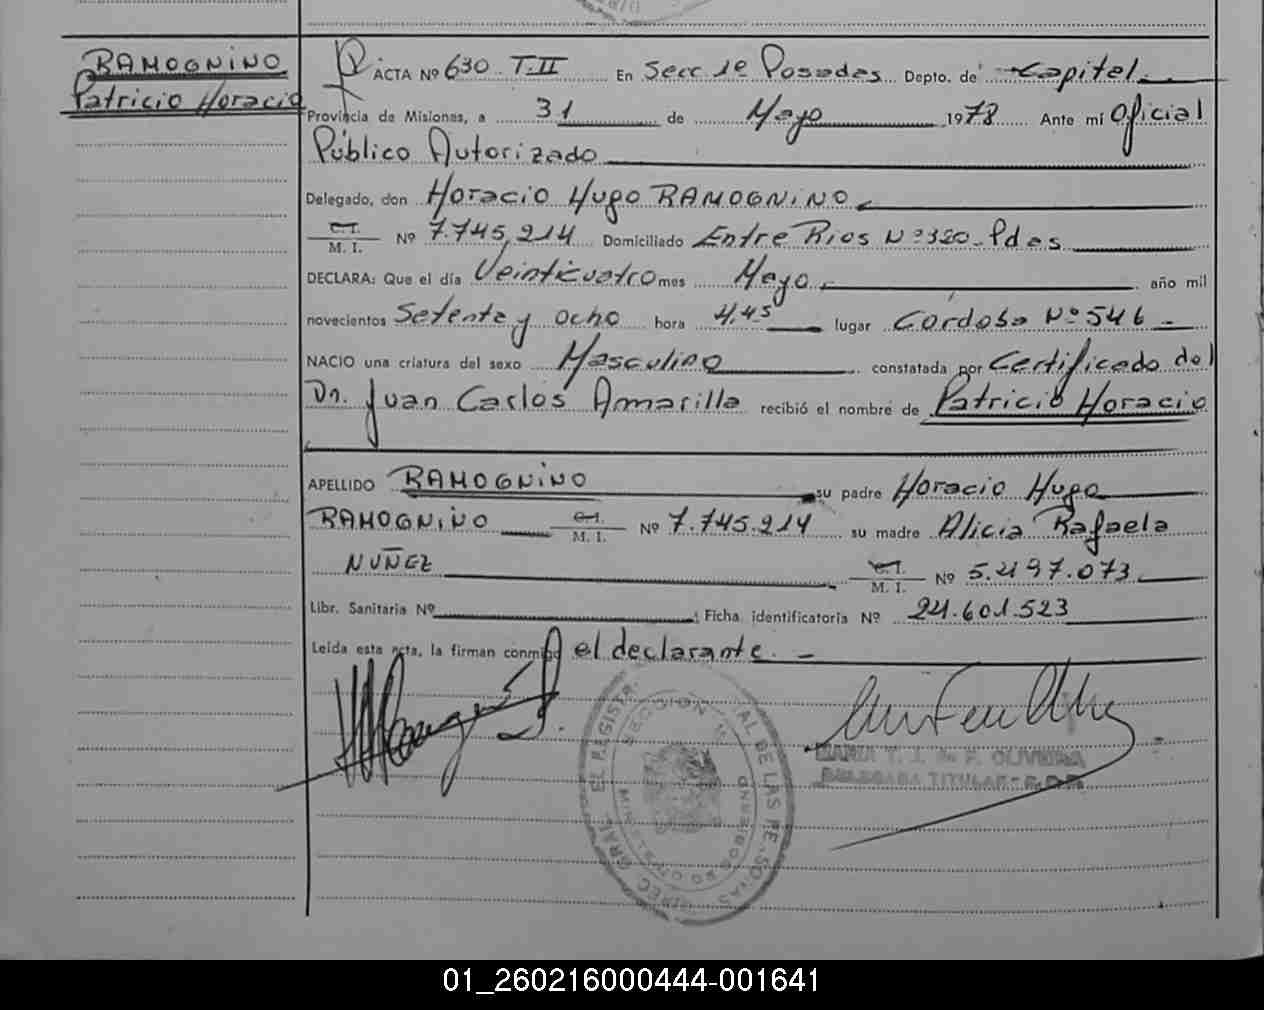 RAMOGNINO
Patricio Horacio
ACTA Nº 630 T.II En Secc. 1º Posadas Depto. de Capital
Provincia de Misiones, a 31 de Mayo 1978 Ante mí Oficial
Público Autorizado
Delegado, don Horacio Hugo RAMOGNINO
C.I.
M. I. Nº 7.745.214 Domiciliado Entre Rios Nº 320 - Pdas
DECLARA: Que el día Veinticuatro mes Mayo año mil
novecientos Setenta y ocho hora 4.45 lugar Cordoba Nº 546 -
NACIO una criatura del sexo Masculino constatada por Certificado del
Dr. Juan Carlos Amarilla recibió el nombre de Patricio Horacio
APELLIDO RAMOGNINO su padre Horacio Hugo
RAMOGNINO C.I. M. I. Nº 7.745.214 su madre Alicia Rafaela
NUÑEZ C.I. M. I. Nº 5.497.073
Libr. Sanitaria Nº ; Ficha identificatoria Nº 24.601.523
Leída esta acta, la firman conmigo el declarante. -
MARIA T. J. de F. OLIVEIRA
DELEGADA TITULAR
SECCION
01_260216000444-001641